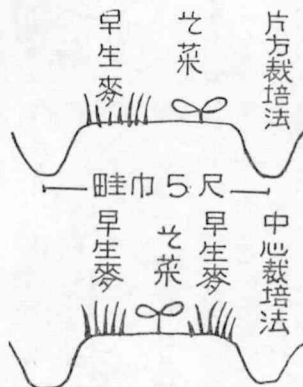 片方裁培法
そ菜
早生麥
畦巾5尺
中心裁培法
早生麥
そ菜
早生麥